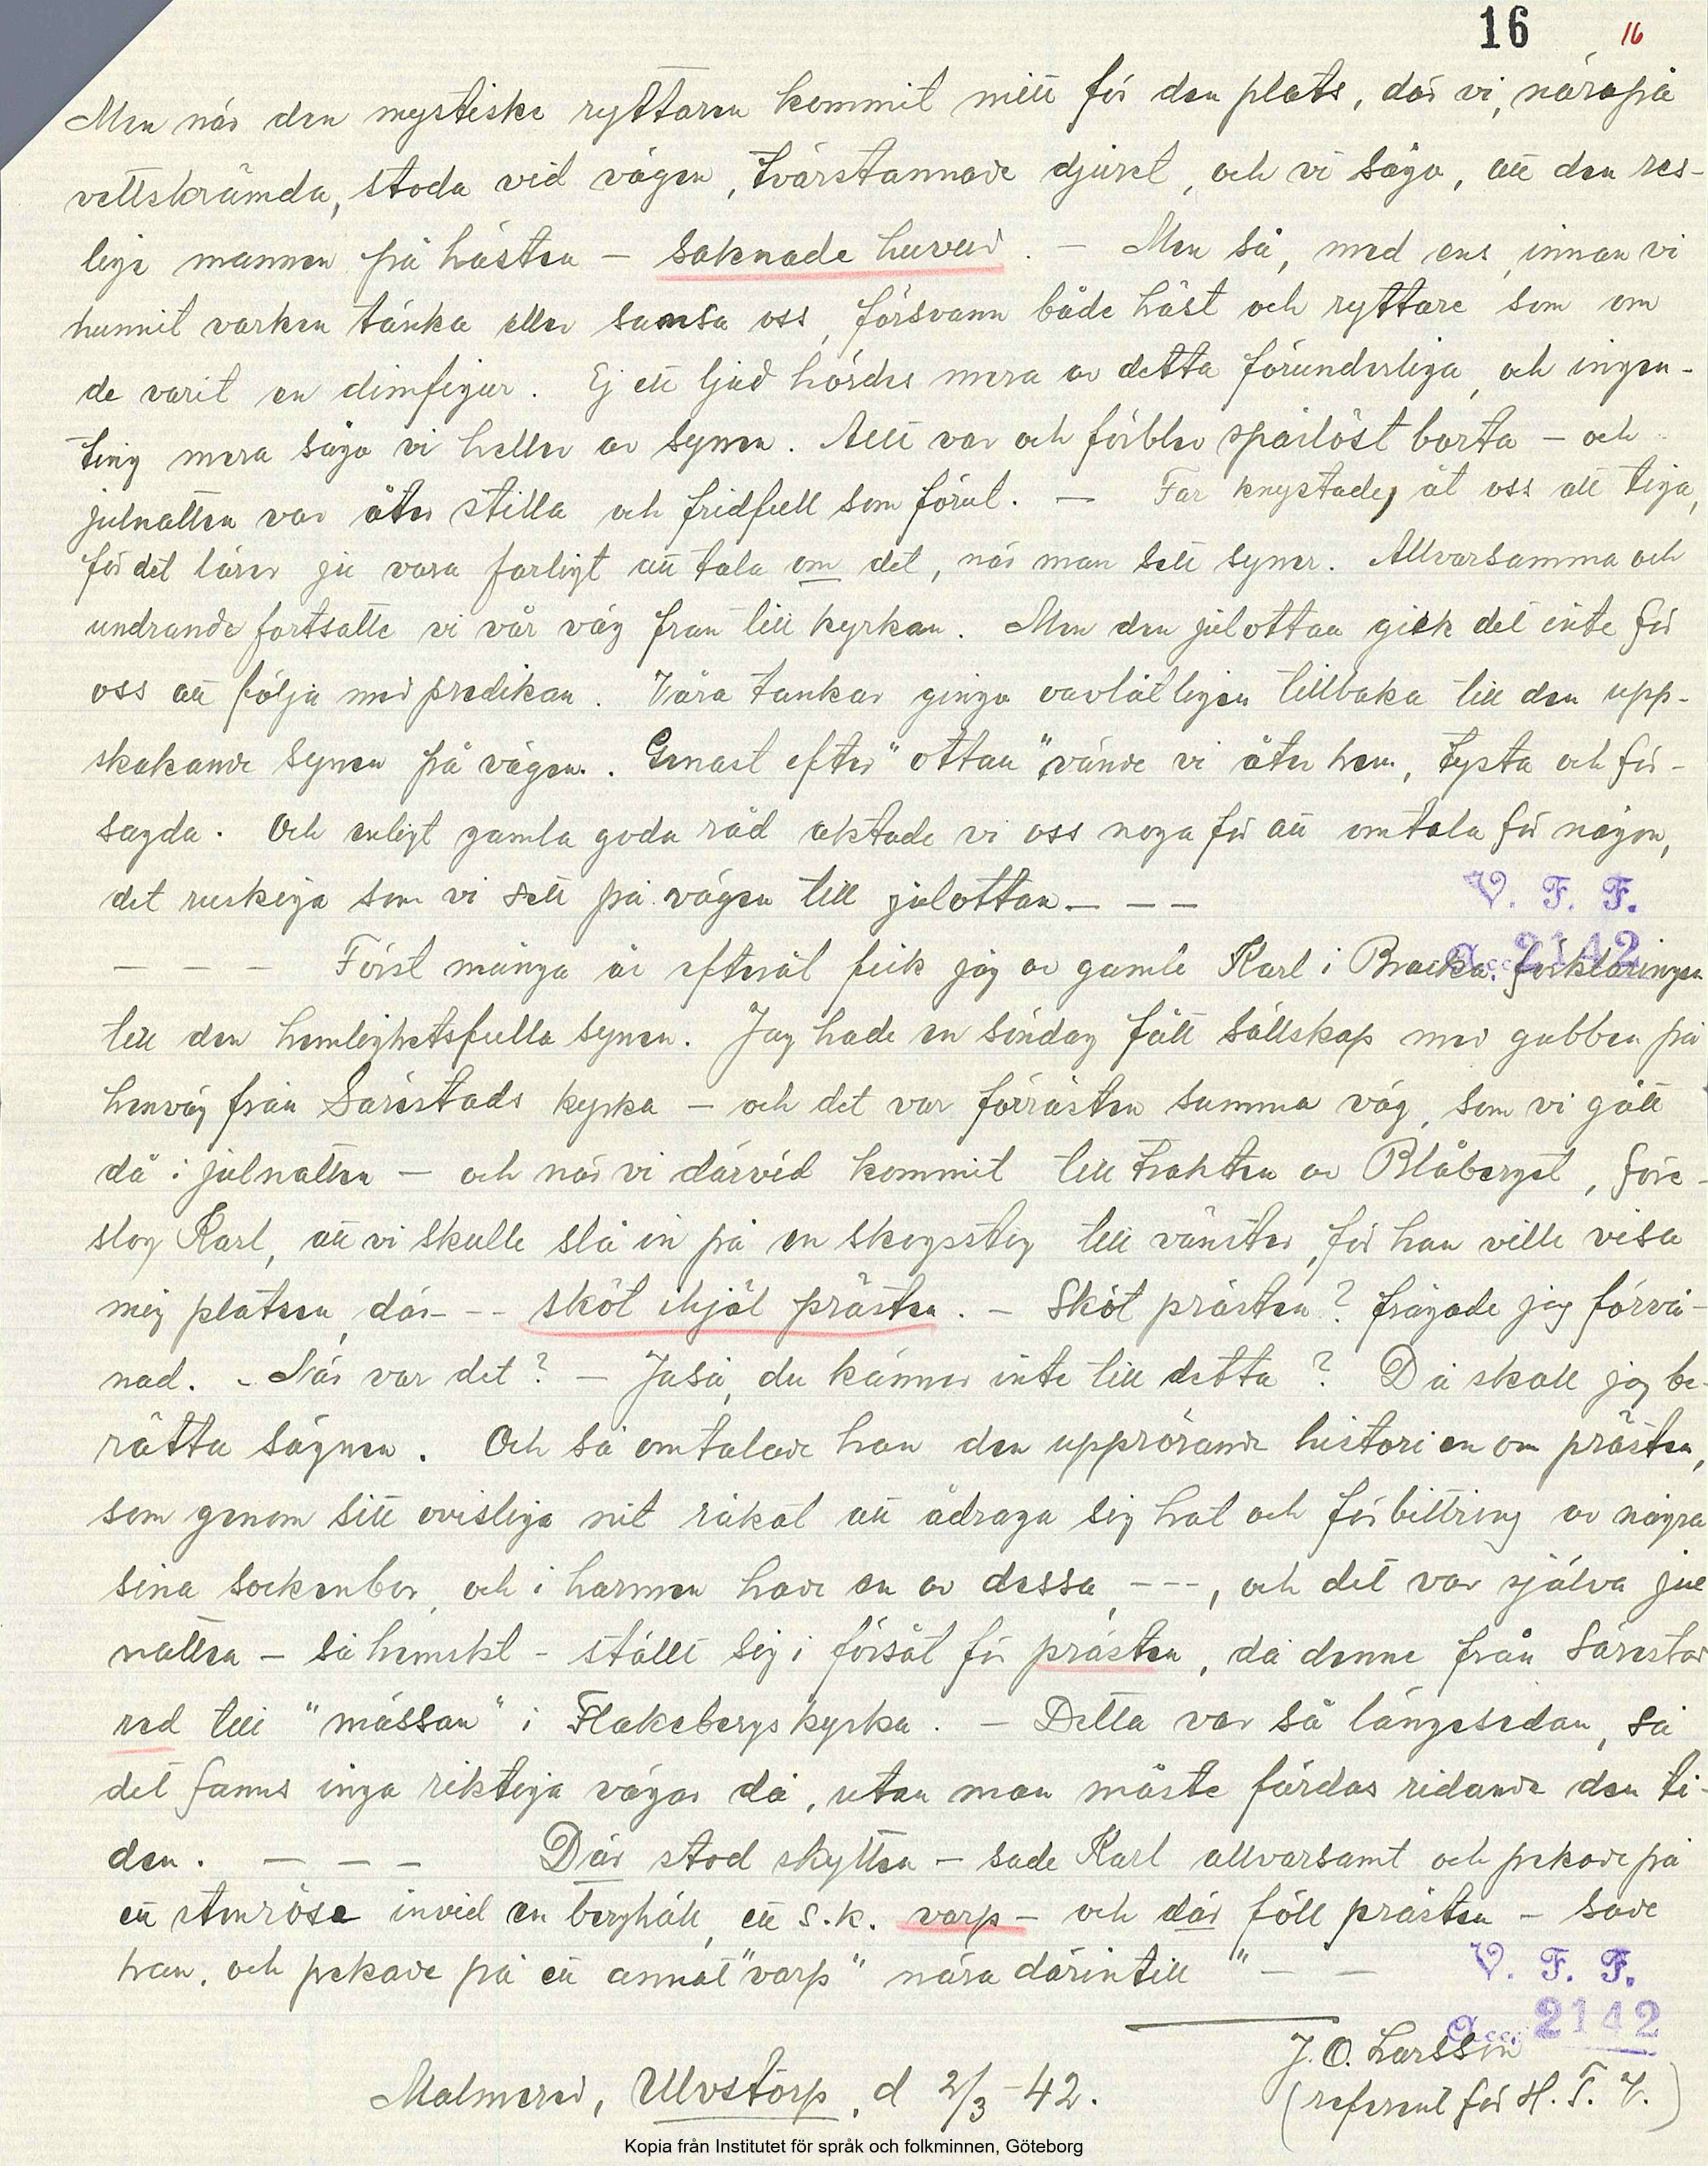 16 16
Men när den mystiske ryttaren kommit mitt för den plats, där vi, närapå
vettskrämda, stodo vid vägen, tvärstannade djuret, och vi sågo, att den res-
lige mannen på hästen – saknade huvud. – Men så, med ens, innan vi
hunnit varken tänka eller samsa oss, försvann både häst och ryttare som om
de varit en dimfigur. Ej ett ljud hördes mera av detta förunderliga, och ingen-
ting mera sågo vi heller av synen. Allt var och förblev spårlöst borta – och
julnatten var åter stilla och fridfull som förut. – Far knystade, åt oss att tiga,
för det lärer ju vara farligt att tala om det, när man sett syner. Allvarsamma och
undrande fortsatte vi vår väg fram till kyrkan. Men den julottan gick det inte för
oss att följa med predikan. Våra tankar gingo oavlåtligen tillbaka till den upp-
skakande synen på vägen. Genast efter "ottan" vände vi åter hem, tysta och för-
sagda. Och enligt gamla goda råd aktade vi oss noga för att omtala för någon,
det ruskiga som vi sett på vägen till julottan – – –
V. F. F.
– – – Först många år efteråt fick jag av gamle Karl i Bracka förklaringen
Acc. 2142
till den hemlighetsfulla synen. Jag hade en söndag fått sällskap med gubben på
hemväg från Särestads kyrka – och det var förrästen samma väg, som vi gått
då i julnatten – och när vi därvid kommit till trakten av Blåberget, före-
slog Karl, att vi skulle slå in på en skogsstig till vänster, för han ville visa
mig platsen, där – – sköt ihjäl prästen. – Sköt prästen? frågade jag förvå-
nad. – När var det? – Jaså, du känner inte till detta? Då skall jag be-
rätta sägnen. Och så omtalade han den upprörande historien om prästen,
som genom sitt ovisliga nit råkat att ådraga sig hat och förbittring av några
sina sockenbor, och i harmen hade en av dessa, – – –, och det var själva jul
natten – så hemskt – ställt sig i försåt för prästen, då denne från Särestad
red till "mässan" i Flakebergs kyrka. – Detta var så längesedan, så
det fanns inga riktiga vägar då, utan man måste färdas ridande den ti-
den. – – – Där stod skytten – sade Karl allvarsamt och pekade på
ett stenröse invid en berghäll, ett s.k. varp – och där föll prästen – sade
han, och pekade på ett annat "varp" nära därintill " – –
V. F. F.
Acc. 2142
J. O. Larsson
Malmered, Ulvstorp, d 2/3 – 42.
(referent för H. T. V.)
Kopia från Institutet för språk och folkminnen, Göteborg